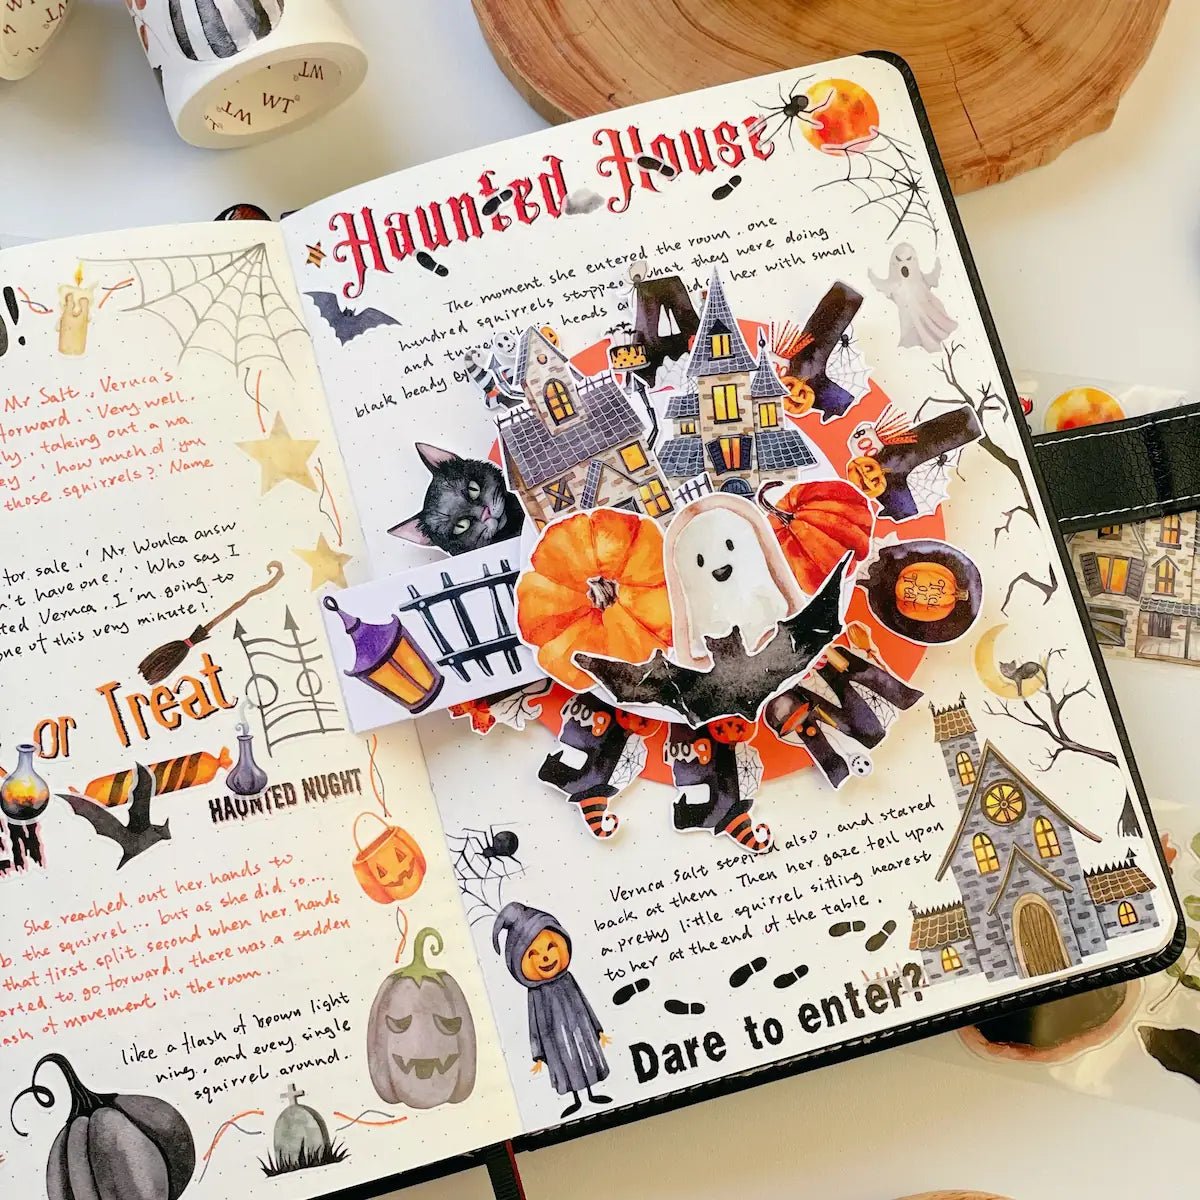 WT WT WT
!
Mr Salt., Veruca's
forward. 'Very well..
taking out a wa.
'how much of you
those squirrels?' Name
for sale.' Mr. Wonka answ
n't have one.' 'Who say I
ted Veruca. I'm going to
one of this very minute!.
or Treat
HAUNTED NUGHT
EN
She reached out her hands to
the squirrel ... but as she did so...
that first split second when her hands
arted to go forward, there was a sudden
ash of movement in the room.
like a flash of brown light
ning, and every single
squirrel around.
Haunted House
The moment she entered the room, one
hundred squirrels stopped what they were doing
and turned their heads her with small
black beady
BOO
BOO
Trick or Treat
BOO
BOO
Veruca Salt stopped also, and stared
back at them. Then her gaze fell upon
a pretty little squirrel sitting nearest
to her at the end of the table.
Dare to enter?